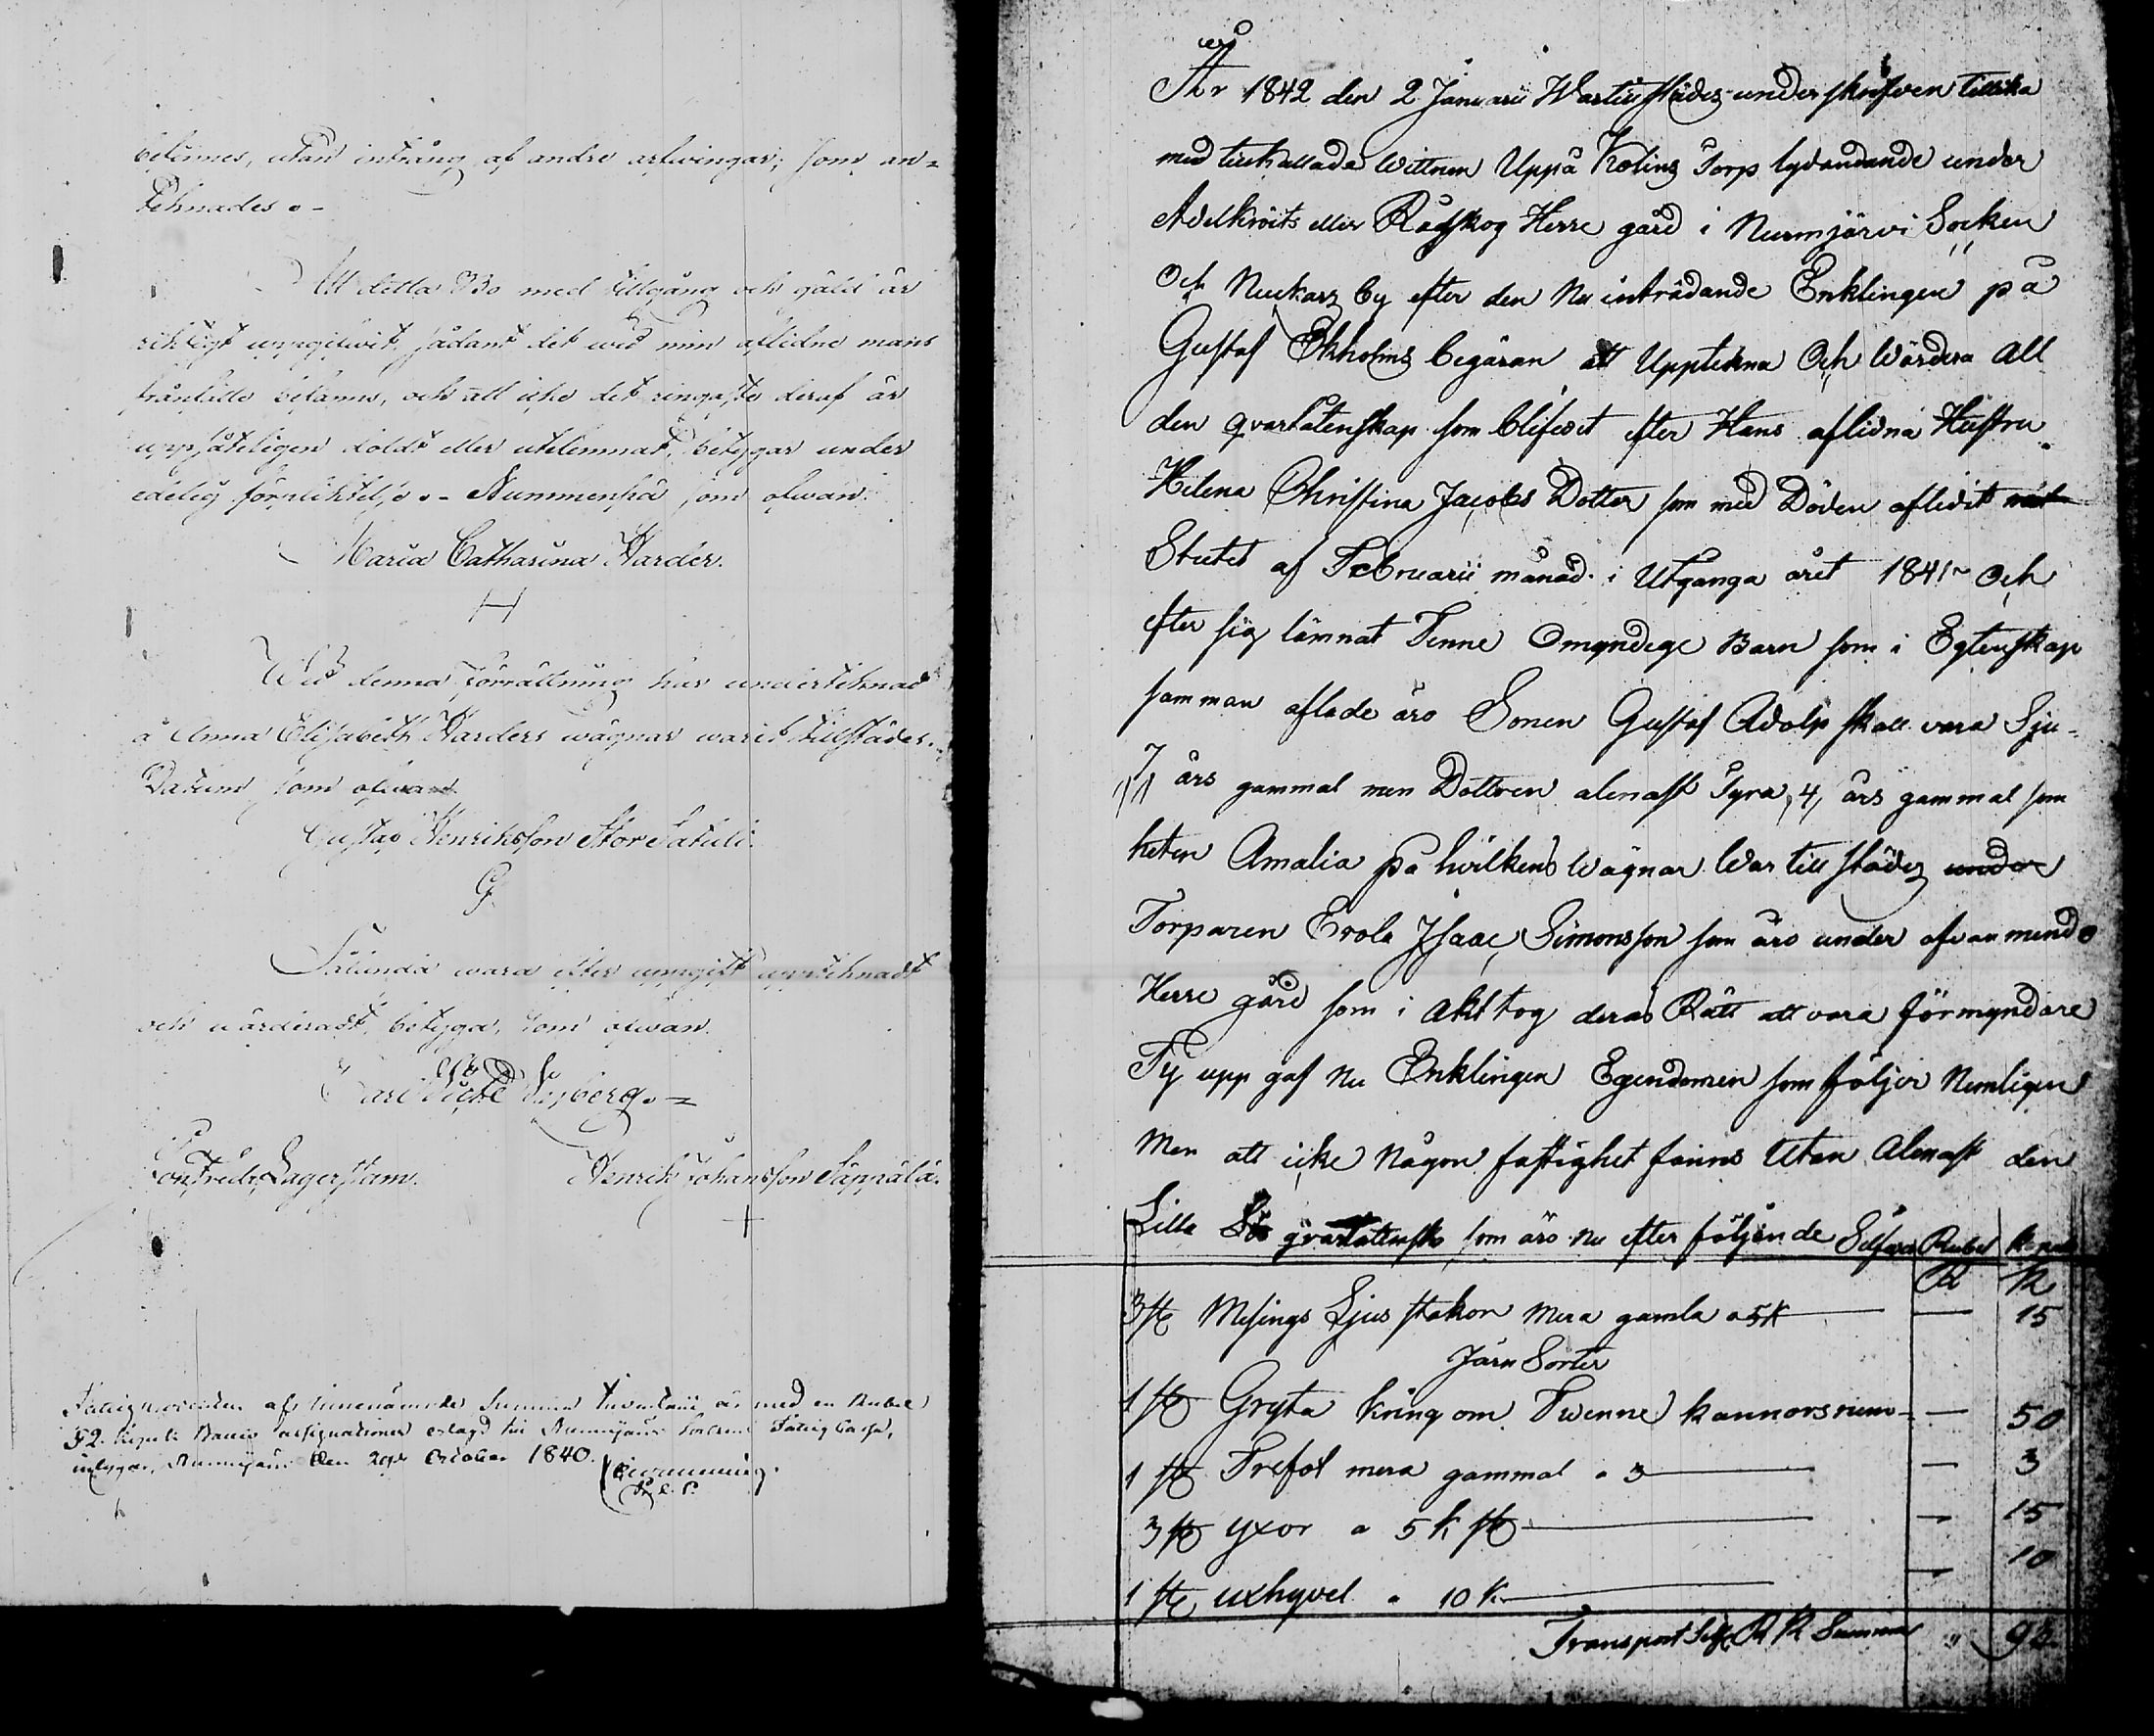 betinnes, utan intrång af andre arfwingar; som an=
teknades.-
Att detta Bo med tillgång och gäld är
riktigt uppgifwit, sådant det wid min aflidne mans
frånfälle befanns, och att icke det ringaste deraf är
uppsåteligen doldt eller utelemnat, betygar under
edelig förpliktelse.- Nummenpää som ofwan.
Maria Catharina Harder.
Wid denna förrättning har undertecknad
å Anna Elisabeth Harders wägnar warit tillstädes.
Datum som ofwan
Gustaf Henriksson Stor
G
Sålunda wara efter uppgift upptecknadt
och wärderadt, betyga, som ofwan.
Carl
Lagerstam. Henrik Johansson Säppälä.
af innenämde Summa är med en Rubel
52. Kopek Banco assignationer erlagd till Nurmijärvi Sockens Fattig Cassa,
intygar, Nurmijärvi den October 1840.
År 1842 den 2 Januarii War till städes underskrifven tillika
med tillkallade Wittnen Uppå Kolins Torp lydandande under
Adelkroits eller Rödskog Herre gård i Nurmjärvi Socken
Och Nuckars by efter den Nu inträdande Enklingen på
Gustaf Ekholms begäran att Upptekna Och Wärdera all
den qvarlåtenskap som blifvit efter Hans aflidna Hustru
Helena Christina Jacobs Dotter som med Döden aflidit
Slutet af Februarii månad i Utganga året 1841 Och
efter sig lämnat Tenne Omyndege Barn som i Egtenskap
samman aflade äro Sonen Gustaf Adolf skall vara Sju
7 års gammal men Dottren alenast Fyra, 4, års gammal som
heter Amalia på hvilkens Wägnar War till städes under
Torparen Erola Isaac Simonsson som äro under ofvanmende
Herre gård som i akt tog deras Rätt att vara förmyndare
Ty upp gaf Nu Enklingen Egendomen som följer Nemligen
Men att icke Någon fastighet fanns Utan Alenast den
Lilla qvarlåtensk som äro nu efter följande Silfver Rubel Kopek
R K
3 st Mesings Ljus stakor Mera gamla a 5 K — 15
Järn Sorter
1 st Gryta kring om Twenne kannors rum — 50
1 st Trefot mera gammal a 3 — 3
3 st yxor a 5 K st — 15
1 st uxhyvel a 10 K — 10
Transport Silf R K Summa " 93